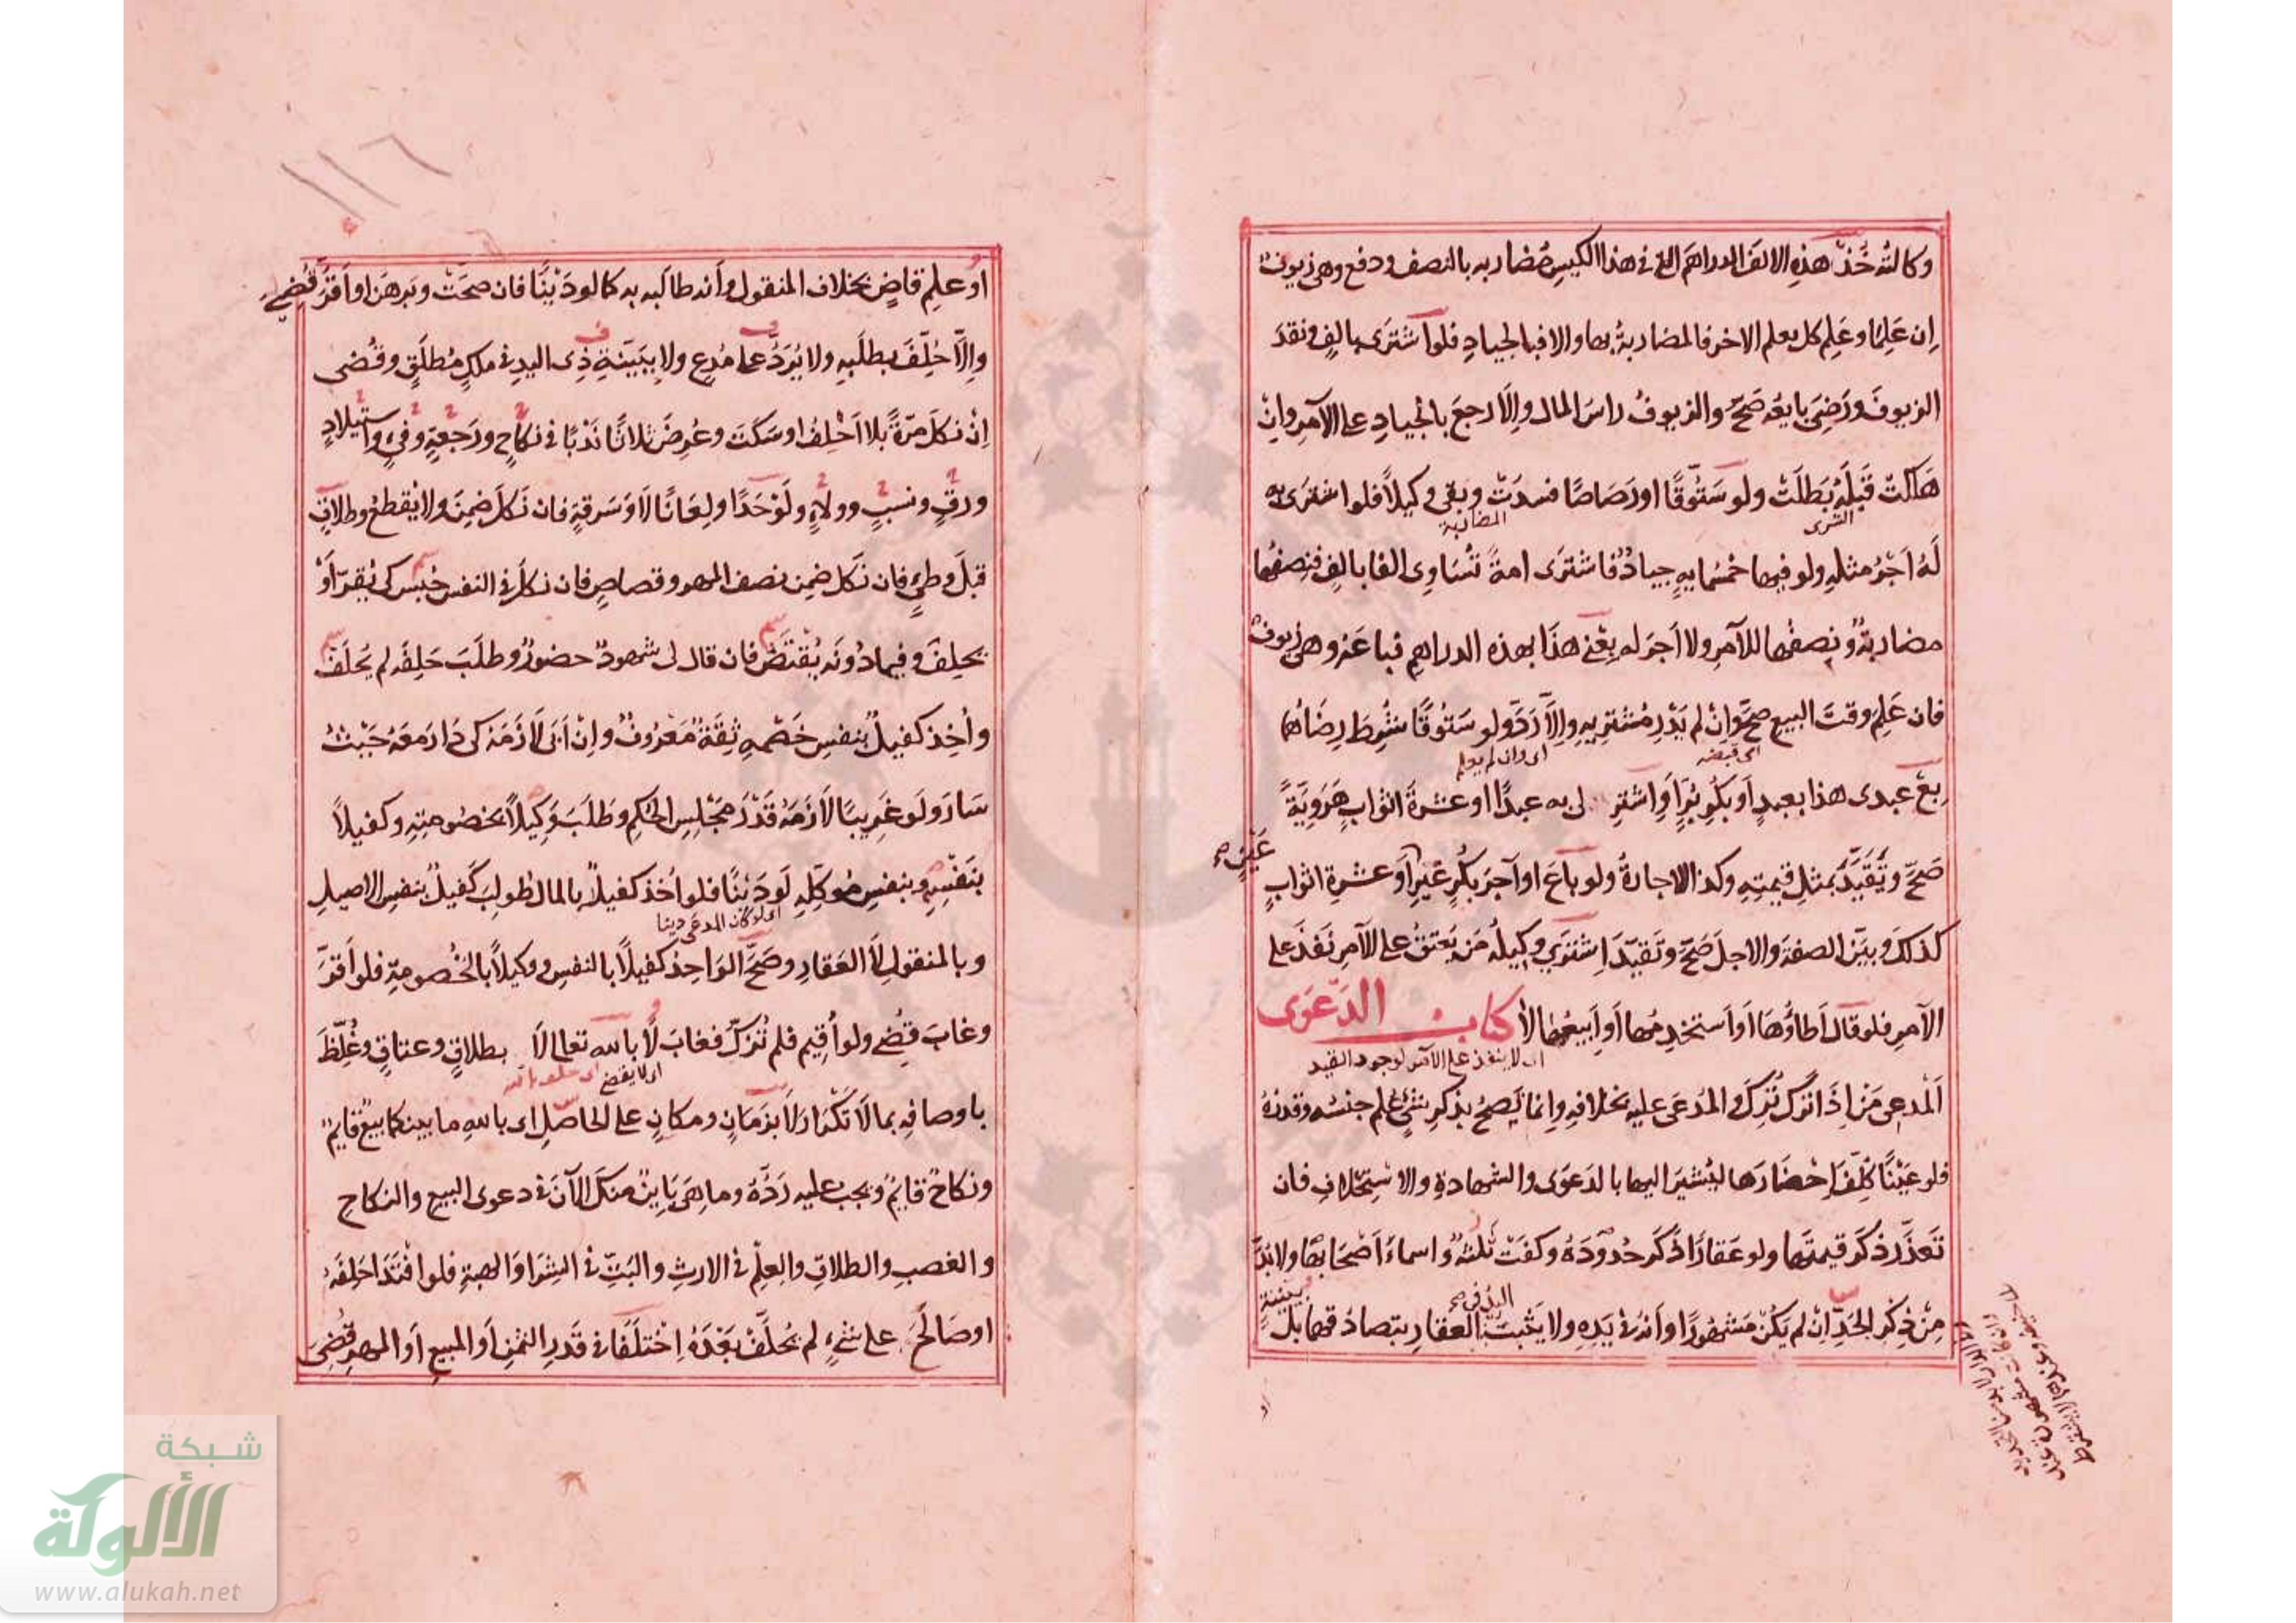 وكالته خُذ هذه الالف الدراهم التي في هذا الكيس مضاربه بالنصف ودفع وهي زيوف
اِن عَلِمَا وعَلِم كل بعلم الاخر فالمضاربة بها والا فبالجيادِ فلو اشترى بالفٍ ونقدَ
الزيوفَ ورَضِيَ بايعُه صَحّ والزيوفُ راسَ المال والّا رجعَ بالجيادِ على الآمرِ واِنْ
هَلَكَتْ قَبْلَهُ بَطلَتْ ولو سَتُّوقًا او رَصَاصًا فسدَتْ وبقي وكيلاً فلو اشترى به
الشرى
المضاربة
لَهُ اَجْرُ مثلهِ ولو فيها خمسُمايهٍ جيادٌ فاشترى امةً تُسَاوِى الفا بالفٍ فنِصفُها
مضاربةٌ ونِصفُها للآمرِ ولا اجرَ له بِعْنى هذَا بهذه الدراهمِ فباعَه وهى زيوفٌ
فان عَلِمَ وقتَ البيعِ صحَّ وانْ لم يَدْرِ مُشْتَرِيهِ واِلّا رَدَّ ولو سَتُوقًا شُرِطَ رِضَاهُما
اى قبضه
اى وان لم يعلم
بِعْ عبدى هذا بعبدٍ اَو بكُرِ بُرٍّ او اشترِ لى به عبدًا او عشرةَ اثوابٍ هَرَوِيَّةً
صَحَّ وتُقَيَّدُ بمثلِ قيمتِهِ وكذا الاجارةُ ولو باعَ او آجرَ بكُرٍ غَيْرِ اَو عشرةِ اثوابٍ
عَيْنٍ صح
كذلكَ وبيّن الصفةَ والاجلَ صَحَّ وتَقَيَّدَ اِشتَرَى وكيلُه مَن يَعتقُ على الآمرِ نَفَذَ على
الآمرِ فلو قالَ اَطاؤُهَا اَو اَستخدِمُها اَو اَبِيعُهَا لاَ كتاب الدّعوَى
اى لا ينفذ على الآمر لوجود القيد
اَلْمدعِى مَنْ اِذَا تَركَ تُرِكَ والمدعَى عليه بخلافِهِ واِنما يَصحُ بذكرِ شئٍ عُلِم جنسُه وقدرُهُ
فلو عَيْنًا كُلِّفَ اِحْضَارَها ليُشيرَ اليها بالدعوَى والشهادةِ والاستِحْلافِ فان
تَعذَّرَ ذكرَ قيمتَها ولو عَقارًا ذكَرَ حُدودَهُ وكفَتْ ثلثةٌ واسماءُ اَصْحَابِهَا ولا بُدَّ
مِنْ ذِكْرِ الجَدِّ اِنْ لم يَكُنْ مَشهورًا وانّهُ فى يَدِهِ ولا يَثبتُ العقارِ بتصادُقِهما بل
اليدُ فى صح
ببينةٍ
١١٦
او عُلِم قاضٍ بخلاف المنقولِ وأنه طالَبه به كما لو دَيْنًا فان صحتْ وبَرهَنَ او اَقرَّ قُضِيَ
واِلّا حُلِّفَ بطلَبِهِ ولا يُرَدُّ على مُدعٍ ولا ببَيّنةِ ذِى اليدِ فى ملكٍ مُطلَقٍ وقُضى
اِنْ نكلَ مرّةً بلا اَحْلِفُ او سكَتَ وعُرِضَ ثلاثًا نَدْبًا فى نكاحٍ ورَجعةٍ وفَىءٍ واستيلادٍ
ورِقٍ ونسبٍ وولاءٍ ولَوْ حَدًا ولِعَانًا لَا وَسَرقةٍ فان نَكلَ ضمِنَ ولا يُقطعُ وطلاقٍ
قبلَ وطئٍ فان نَكل ضمِن نصف المهر وقصاصٍ فان نكلَ فى النفس حُبِس كى يُقِرّ اَوْ
يحلِفَ وفيما دُونَه يُقتَصُّ فان قال لى شهودٌ حضورٌ وطلَبَ حَلِفَه لم يُحلَّفْ
وأُخِذ كفيلٌ بنفسِ خَصْمِهِ ثِقَةٌ مَعْرُوفٌ واِنْ اَبَى لَازَمَهُ كى دَارَ مَعَهُ حَيْثُ
سَارَ ولَو غَرِيبًا لَازَمَهُ قَدْرَ مَجْلِسِ الحُكمِ وطَلَبَ وَكيلاً بخصُومتِهِ وكفيلاً
بنَفْسِهِ وبنفسِ مُوَكِّلِهِ لَو دَيْنًا فلو اُخِذ كفيلاً بالمال طُولِبَ كَفيلٌ بنفسِ الاصيلِ
اى لو كان المدعى دينا
وبالمنقولِ لاَ العَقارِ وصَحَّ الوَاحِدُ كفيلاً بالنفسِ ووكيلاً بالخُصومةِ فلو اَقرَّ
وغابَ قُضِىَ ولو اُقِيم فلم تُزَكَّ فغابَ لَا بالله تعالى لَا بطلاقٍ وعتاقٍ وغُلِّظَ
اى لا يقضى
اى حلف بالله
باوصافِه بما لَا تَكْرارَ لَا بزَمَانٍ ومكانٍ على الحاصلِ اى باللهِ ما بينكما بيعٌ قايمٌ
ونكاحٌ قايمٌ ويجب عليه رَدُّه وما هِىَ بَاينٌ منكَ الآنَ فى دعوى البيعِ والنكاحِ
والغصبِ والطلاقِ والعِلْمِ فى الارثِ والبَتِّ فى الشِرَا والهبةِ فلو افْتَدَا حَلِفَه
او صَالَحَ على شئٍ لم يُحلَّفْ بَعْدَهُ اِخْتلَفَا فى قَدرِ الثمَنِ اَو المبيعِ اَو المهرِ قُضِىَ
شبكة
الألوكة
www.alukah.net